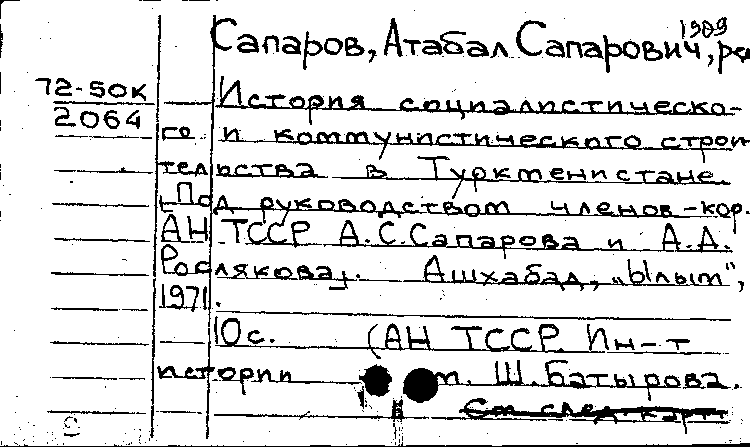 1909
Сапаров, Атабал Сапарович, ре
72-50К
История социалистическо-
2064
го и коммунистического строи
тельства в Туркменистане.
[Под руководством членов-кор.
АН ТССР А.С.Сапарова и А.А.
Рослякова]. Ашхабад, "Ылым",
1971.
10с. (АН ТССР. Ин-т
истории им. Ш.Батырова.
См след карт